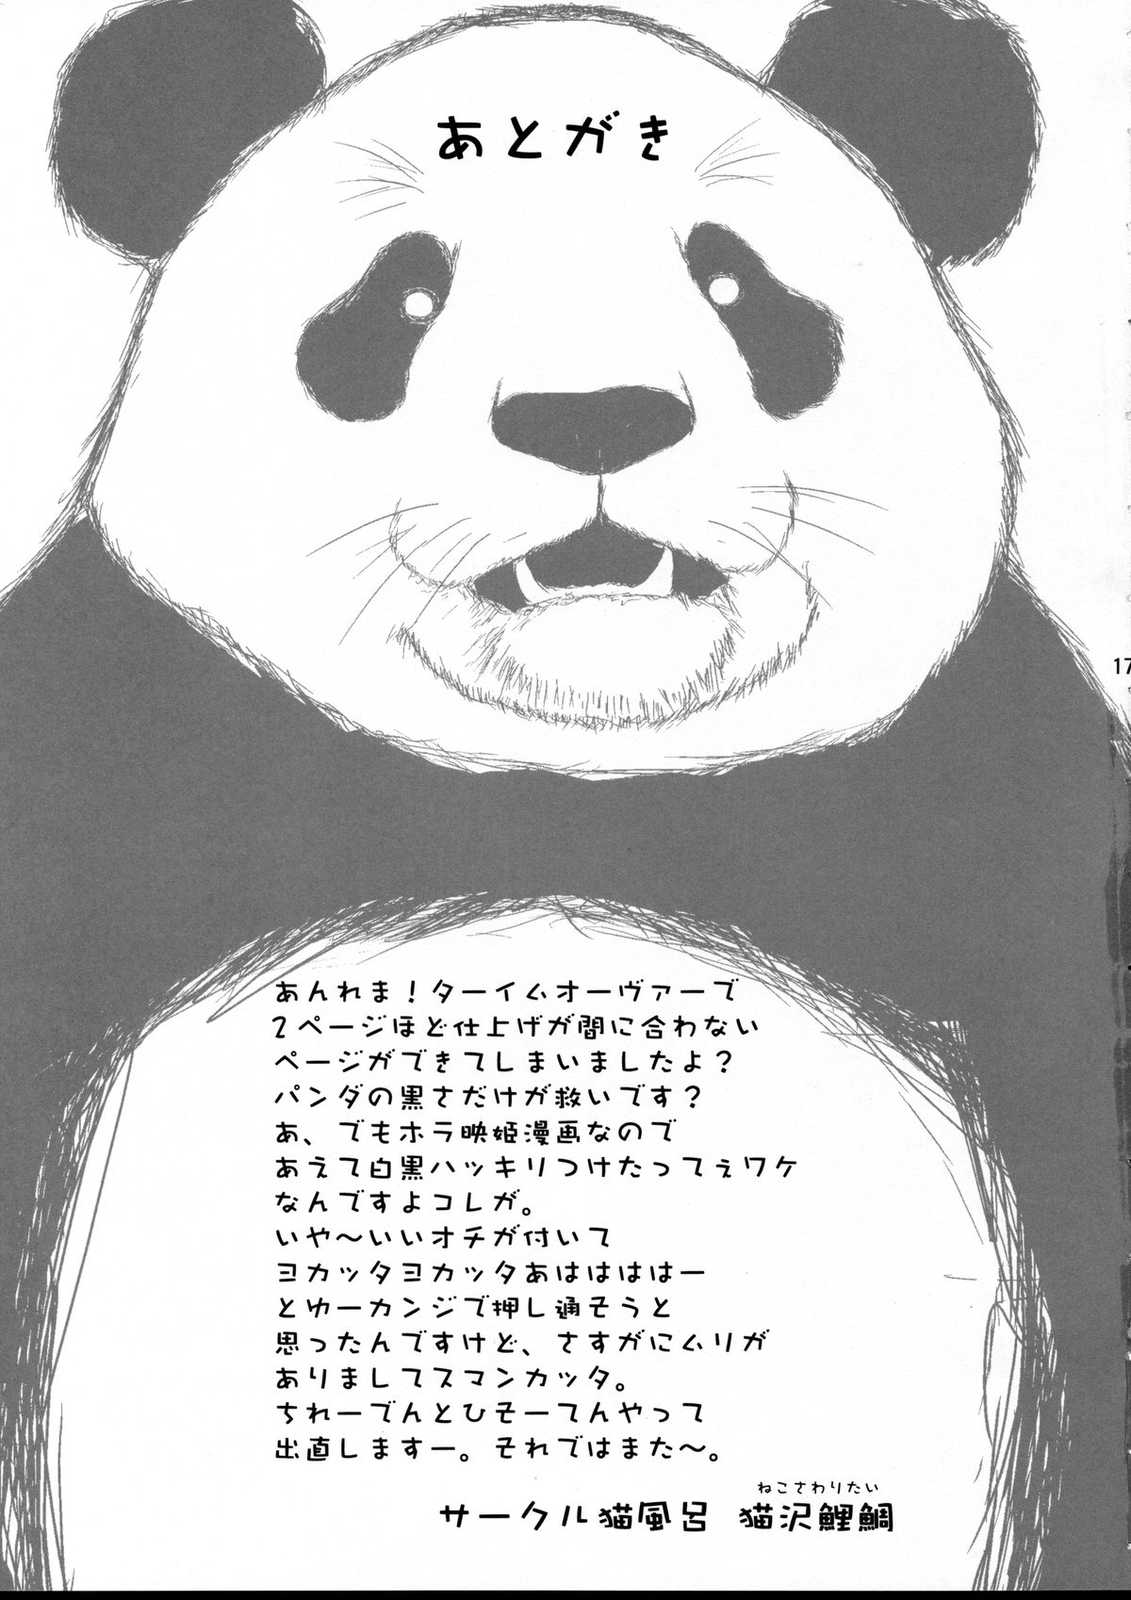 あとがき
17
あんれま！ターイムオーヴァーで
2ページほど仕上げが間に合わない
ページができてしまいましたよ？
パンダの黒さだけが救いです？
あ、でもホラ映姫漫画なので
あえて白黒ハッキリつけたってぇワケ
なんですよコレが。
いや～いいオチが付いて
ヨカッタヨカッタあはははは―
とゆーカンジで押し通そうと
思ったんですけど、さすがにムリが
ありましてスマンカッタ。
ちれーでんとひそーてんやって
出直しますー。それではまた～。
ねこさわりたい
サークル猫風呂 猫沢鯉鯛